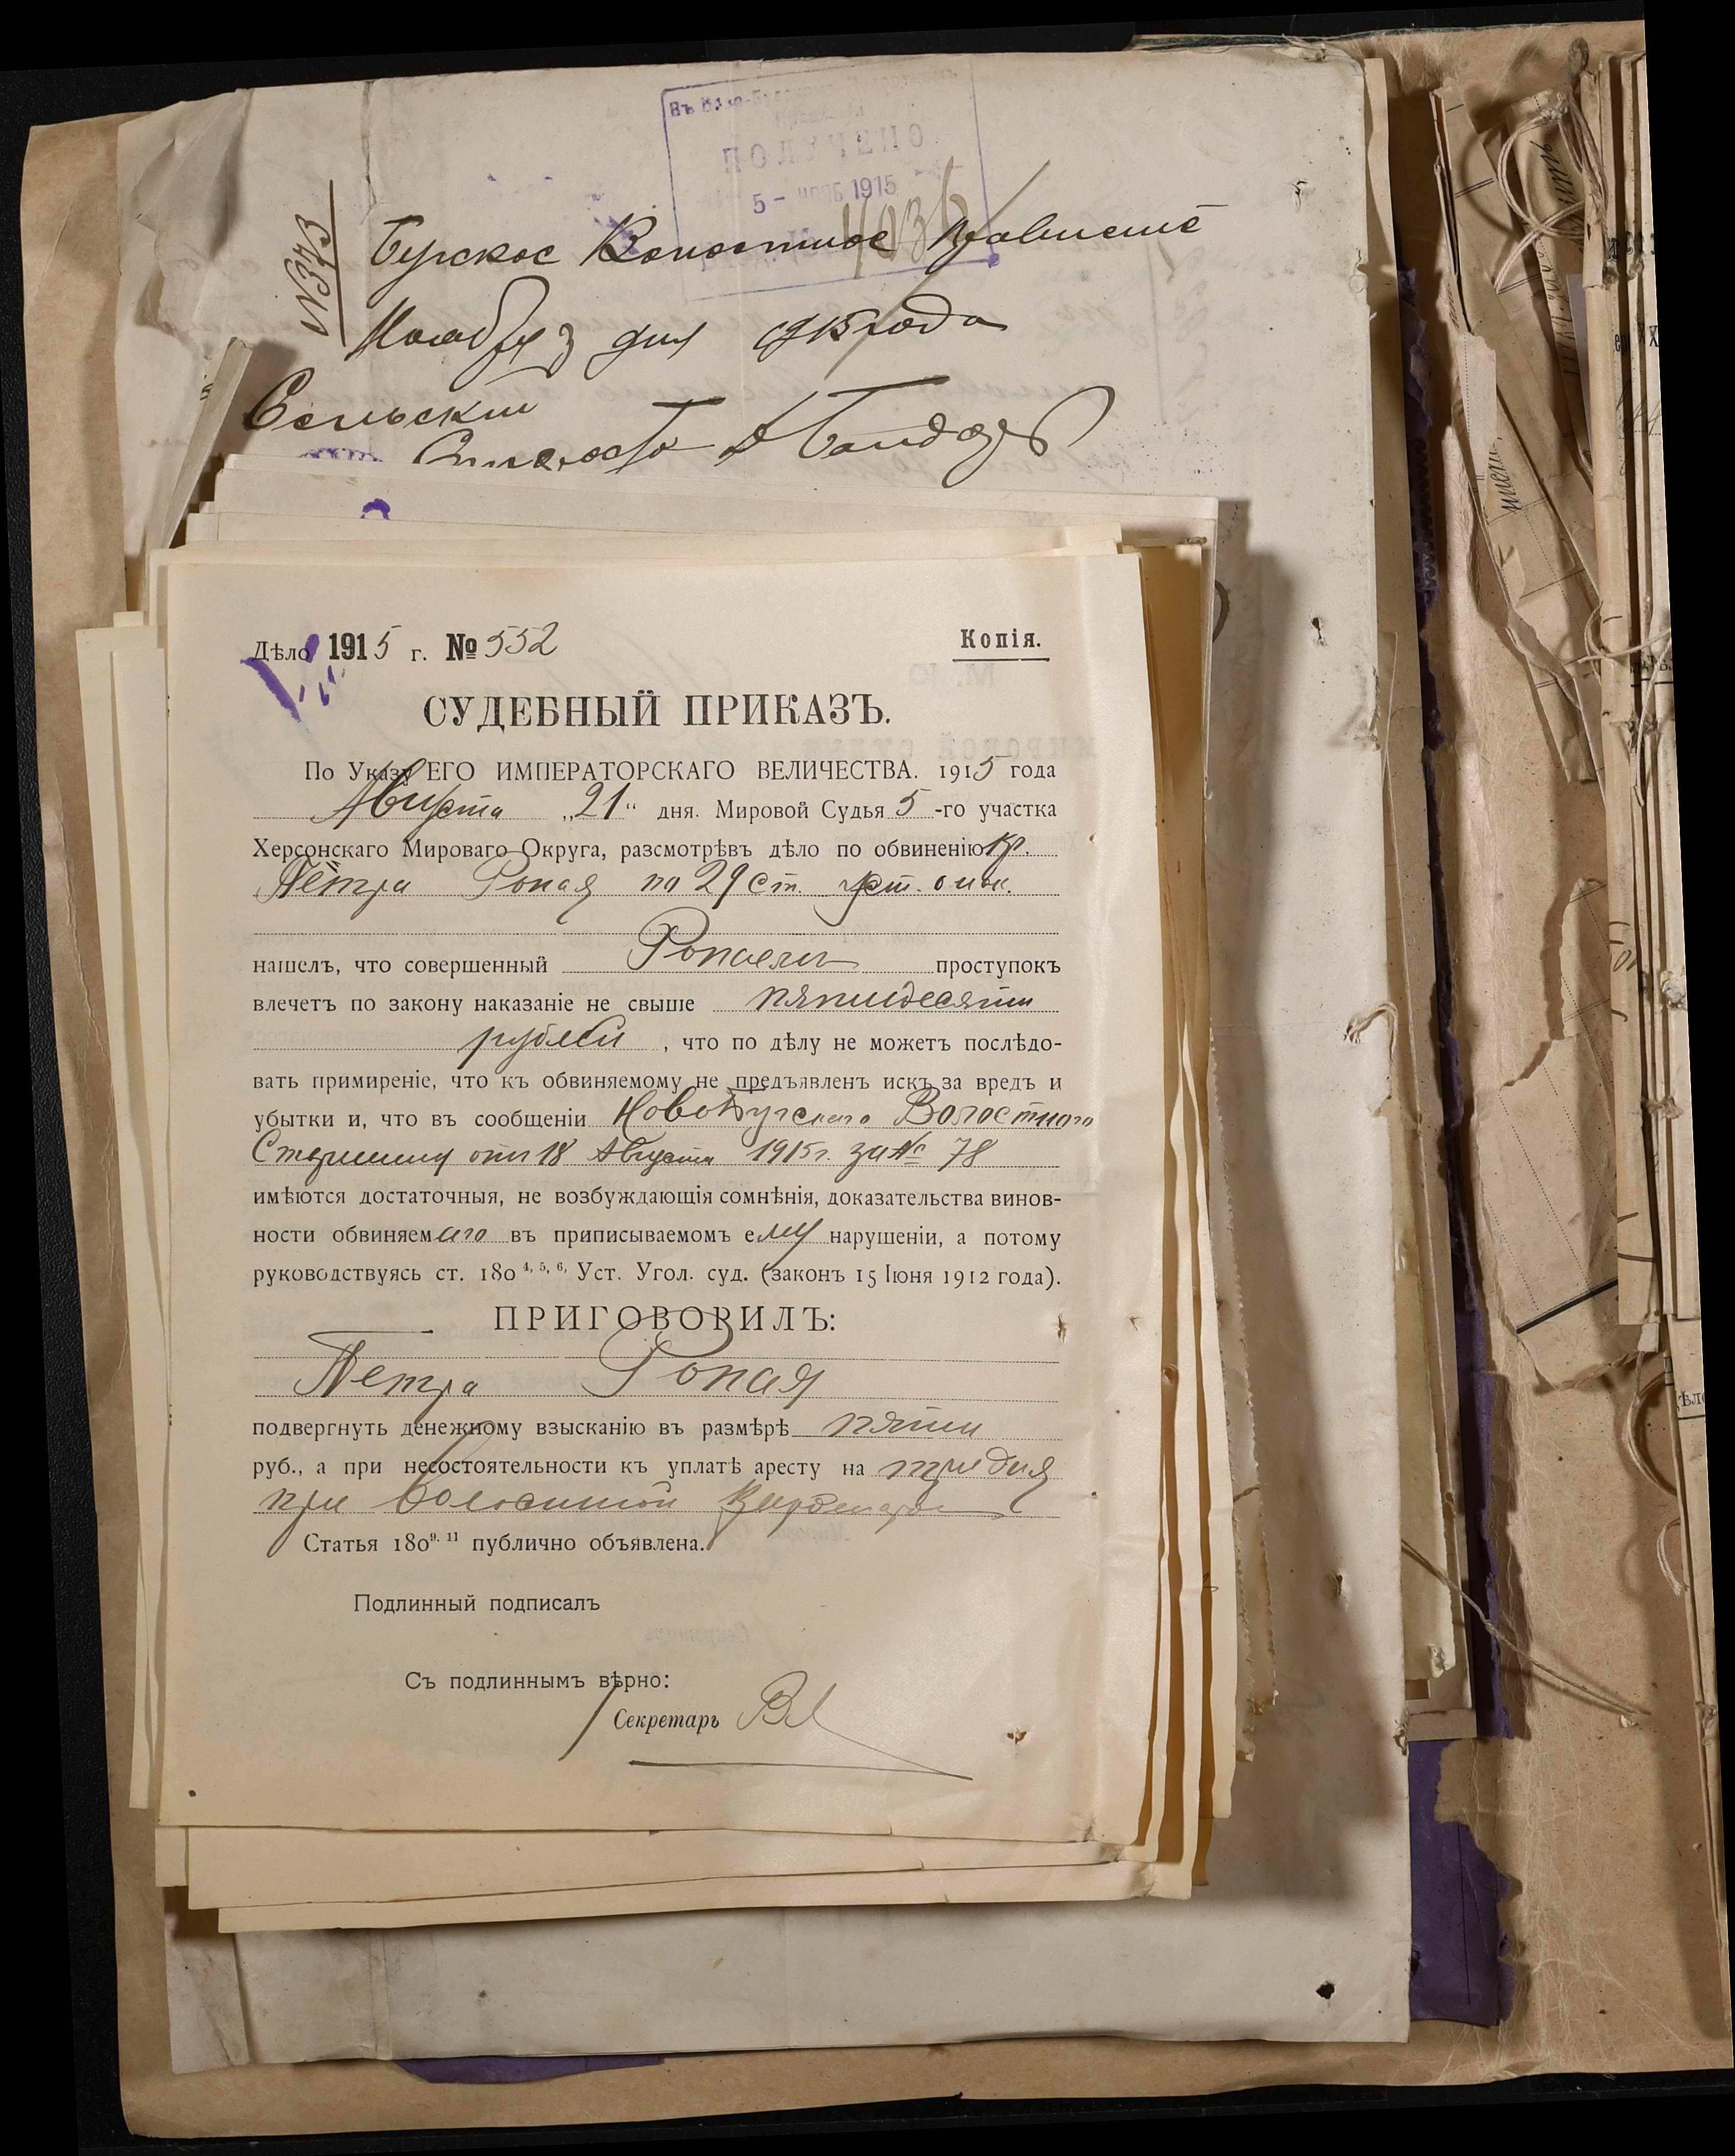 ПОЛУЧЕНО
5 - НОЯБ 1915
4036
№ 373
Бугское Волостное Правление
Ноября 3 дня 1915 года
Сельский
Староста
Дѣло 1915 г. № 552
Копія.
СУДЕБНЫЙ ПРИКАЗЪ.
По Указу ЕГО ИМПЕРАТОРСКАГО ВЕЛИЧЕСТВА. 1915 года
Августа „21“ дня. Мировой Судья 5-го участка
Херсонскаго Мироваго Округа, разсмотрѣвъ дѣло по обвиненію кр.
Петра Ропая по 29 ст. уст. о нак.
нашелъ, что совершенный Ропаемъ проступокъ
влечетъ по закону наказаніе не свыше пятидесяти
рублей, что по дѣлу не можетъ послѣдо-
вать примиреніе, что къ обвиняемому не предъявленъ искъ за вредъ и
убытки и, что въ сообщеніи НовоБугскаго Волостного
Старшины отъ 18 Августа 1915 г. за № 78
имѣются достаточныя, не возбуждающія сомнѣнія, доказательства винов-
ности обвиняемаго въ приписываемомъ ему нарушеніи, а потому
руководствуясь ст. 180 4, 5, 6, Уст. Угол. суд. (законъ 15 Іюня 1912 года).
ПРИГОВОРИЛЪ:
Петра Ропая
подвергнуть денежному взысканію въ размѣрѣ пяти
руб., а при несостоятельности къ уплатѣ аресту на три дня
при волостной
Статья 180 9. 11 публично объявлена.
Подлинный подписалъ
Съ подлиннымъ вѣрно:
Секретарь